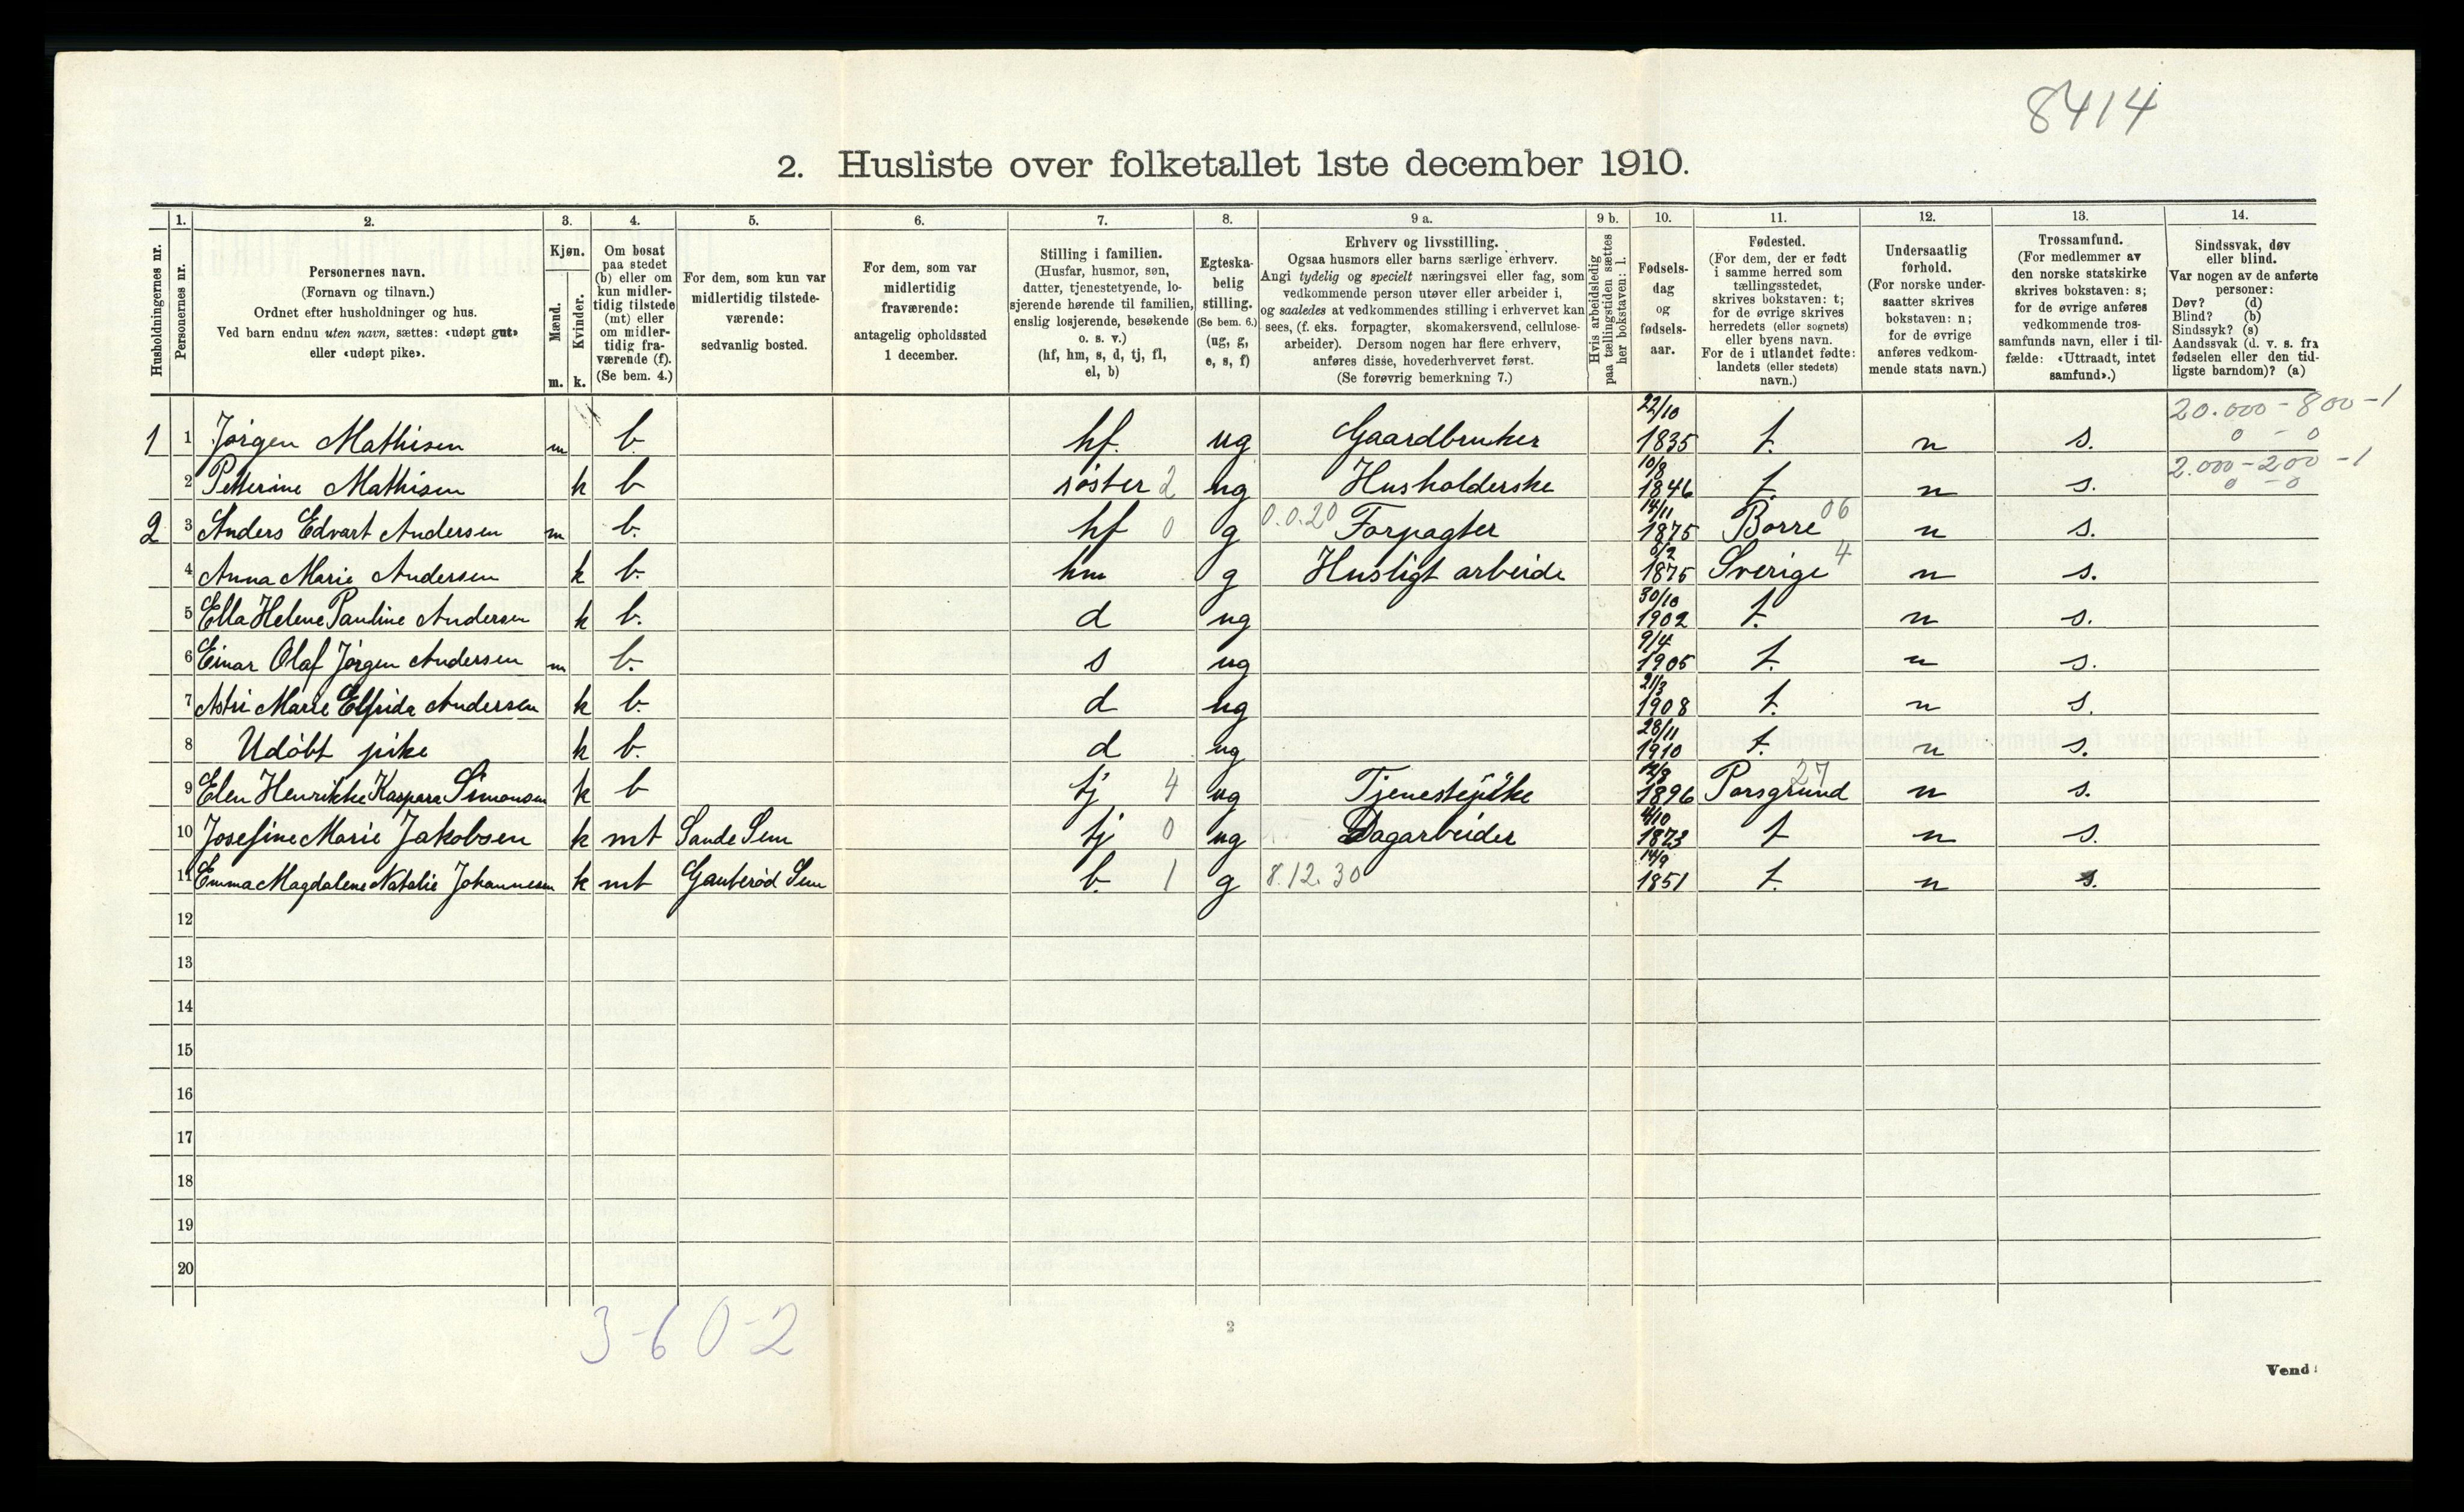 8414
2. Husliste over folketallet 1ste december 1910.
Husholdningernes nr.
1. Personernes nr.
2. Personernes navn. (Fornavn og tilnavn.) Ordnet efter husholdninger og hus. Ved barn endnu uten navn, sættes: «udøpt gut» eller «udøpt pike».
3. Kjøn. Mænd. m. Kvinder. k.
4. Om bosat paa stedet (b) eller om kun midlertidig tilstede (mt) eller om midlertidig fraværende (f). (Se bem. 4.)
5. For dem, som kun var midlertidig tilstedeværende: sedvanlig bosted.
6. For dem, som var midlertidig fraværende: antagelig opholdssted 1 december.
7. Stilling i familien. (Husfar, husmor, søn, datter, tjenestetyende, losjerende hørende til familien, enslig losjerende, besøkende o. s. v.) (hf, hm, s, d, tj, fl, el, b)
8. Egteskabelig stilling. (Se bem. 6.) (ug, g, e, s, f)
9 a. Erhverv og livsstilling. Ogsaa husmors eller barns særlige erhverv. Angi tydelig og specielt næringsvei eller fag, som vedkommende person utøver eller arbeider i, og saaledes at vedkommendes stilling i erhvervet kan sees, (f. eks. forpagter, skomakersvend, cellulosearbeider). Dersom nogen har flere erhverv, anføres disse, hovederhvervet først. (Se forøvrig bemerkning 7.)
9 b. Hvis arbeidsledig paa tællingstiden sættes her bokstaven: l.
10. Fødselsdag og fødselsaar.
11. Fødested. (For dem, der er født i samme herred som tællingsstedet, skrives bokstaven: t; for de øvrige skrives herredets (eller sognets) eller byens navn. For de i utlandet fødte: landets (eller stedets) navn.)
12. Undersaatlig forhold. (For norske undersaatter skrives bokstaven: n; for de øvrige anføres vedkommende stats navn.)
13. Trossamfund. (For medlemmer av den norske statskirke skrives bokstaven: s; for de øvrige anføres vedkommende trossamfunds navn, eller i tilfælde: «Uttraadt, intet samfund».)
14. Sindssvak, døv eller blind. Var nogen av de anførte personer: Døv? (d) Blind? (b) Sindssyk? (s) Aandssvak (d. v. s. fra fødselen eller den tidligste barndom)? (a)
1 1 Jørgen Mathisen m b. hf. ug Gaardbruker 22/10 1835 t. n s. 20.000-800-1 0-0
2 Petterine Mathisen k b søster 2 ug Husholderske 10/8 1846 t n s. 2.000-200-1 0-0
2 3 Anders Edvart Andersen m b. hf 0 g 0.0.20 Forpagter 14/11 1875 Borre 06 n s.
4 Anna Marie Andersen k b. hm g Husligt arbeide 6/2 1875 Sverige 4 n s.
5 Ella Helene Pauline Andersen k b. d ug 30/10 1902 t. n s.
6 Einar Olaf Jørgen Andersen m b. s ug 9/4 1905 t. n s.
7 Astri Marie Elfrida Andersen k b. d ug 21/3 1908 t. n s.
8 Udøbt pike k b. d ug 28/11 1910 t. n s.
9 Elen Henrikke Kaspara Simonsen k b tj 4 ug Tjenestepike 12/8 1896 Porsgrund 27 n s.
10 Josefine Marie Jakobsen k mt Sande Sem tj 0 ug Dagarbeider 4/10 1873 t n s.
11 Emma Magdalene Natalie Johannesen k mt Gauterød Sem b. 1 g 8.12.30 14/9 1851 t. n s.
12
13
14
15
16
17
18
19
20
3-6 0-2
2
Vend!